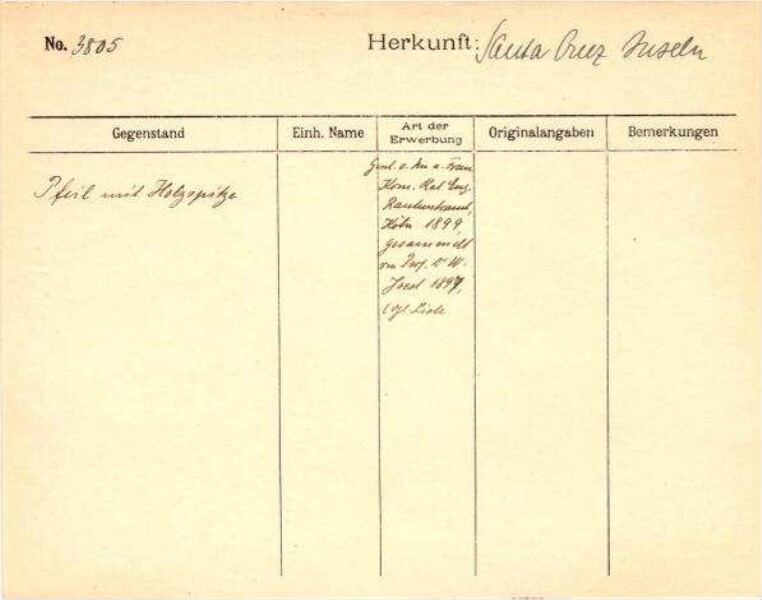 No. 3805
Herkunft: Santa Cruz Inseln
Gegenstand
Einh. Name
Art der
Erwerbung
Originalangaben
Bemerkungen
Pfeil mit Holzspitze
Gesch. v. Frau
Kom. Rat Eug.
Rautenstrauch,
Köln 1899,
gesammelt
von Prof. Dr W.
Joest 1897,
Liste